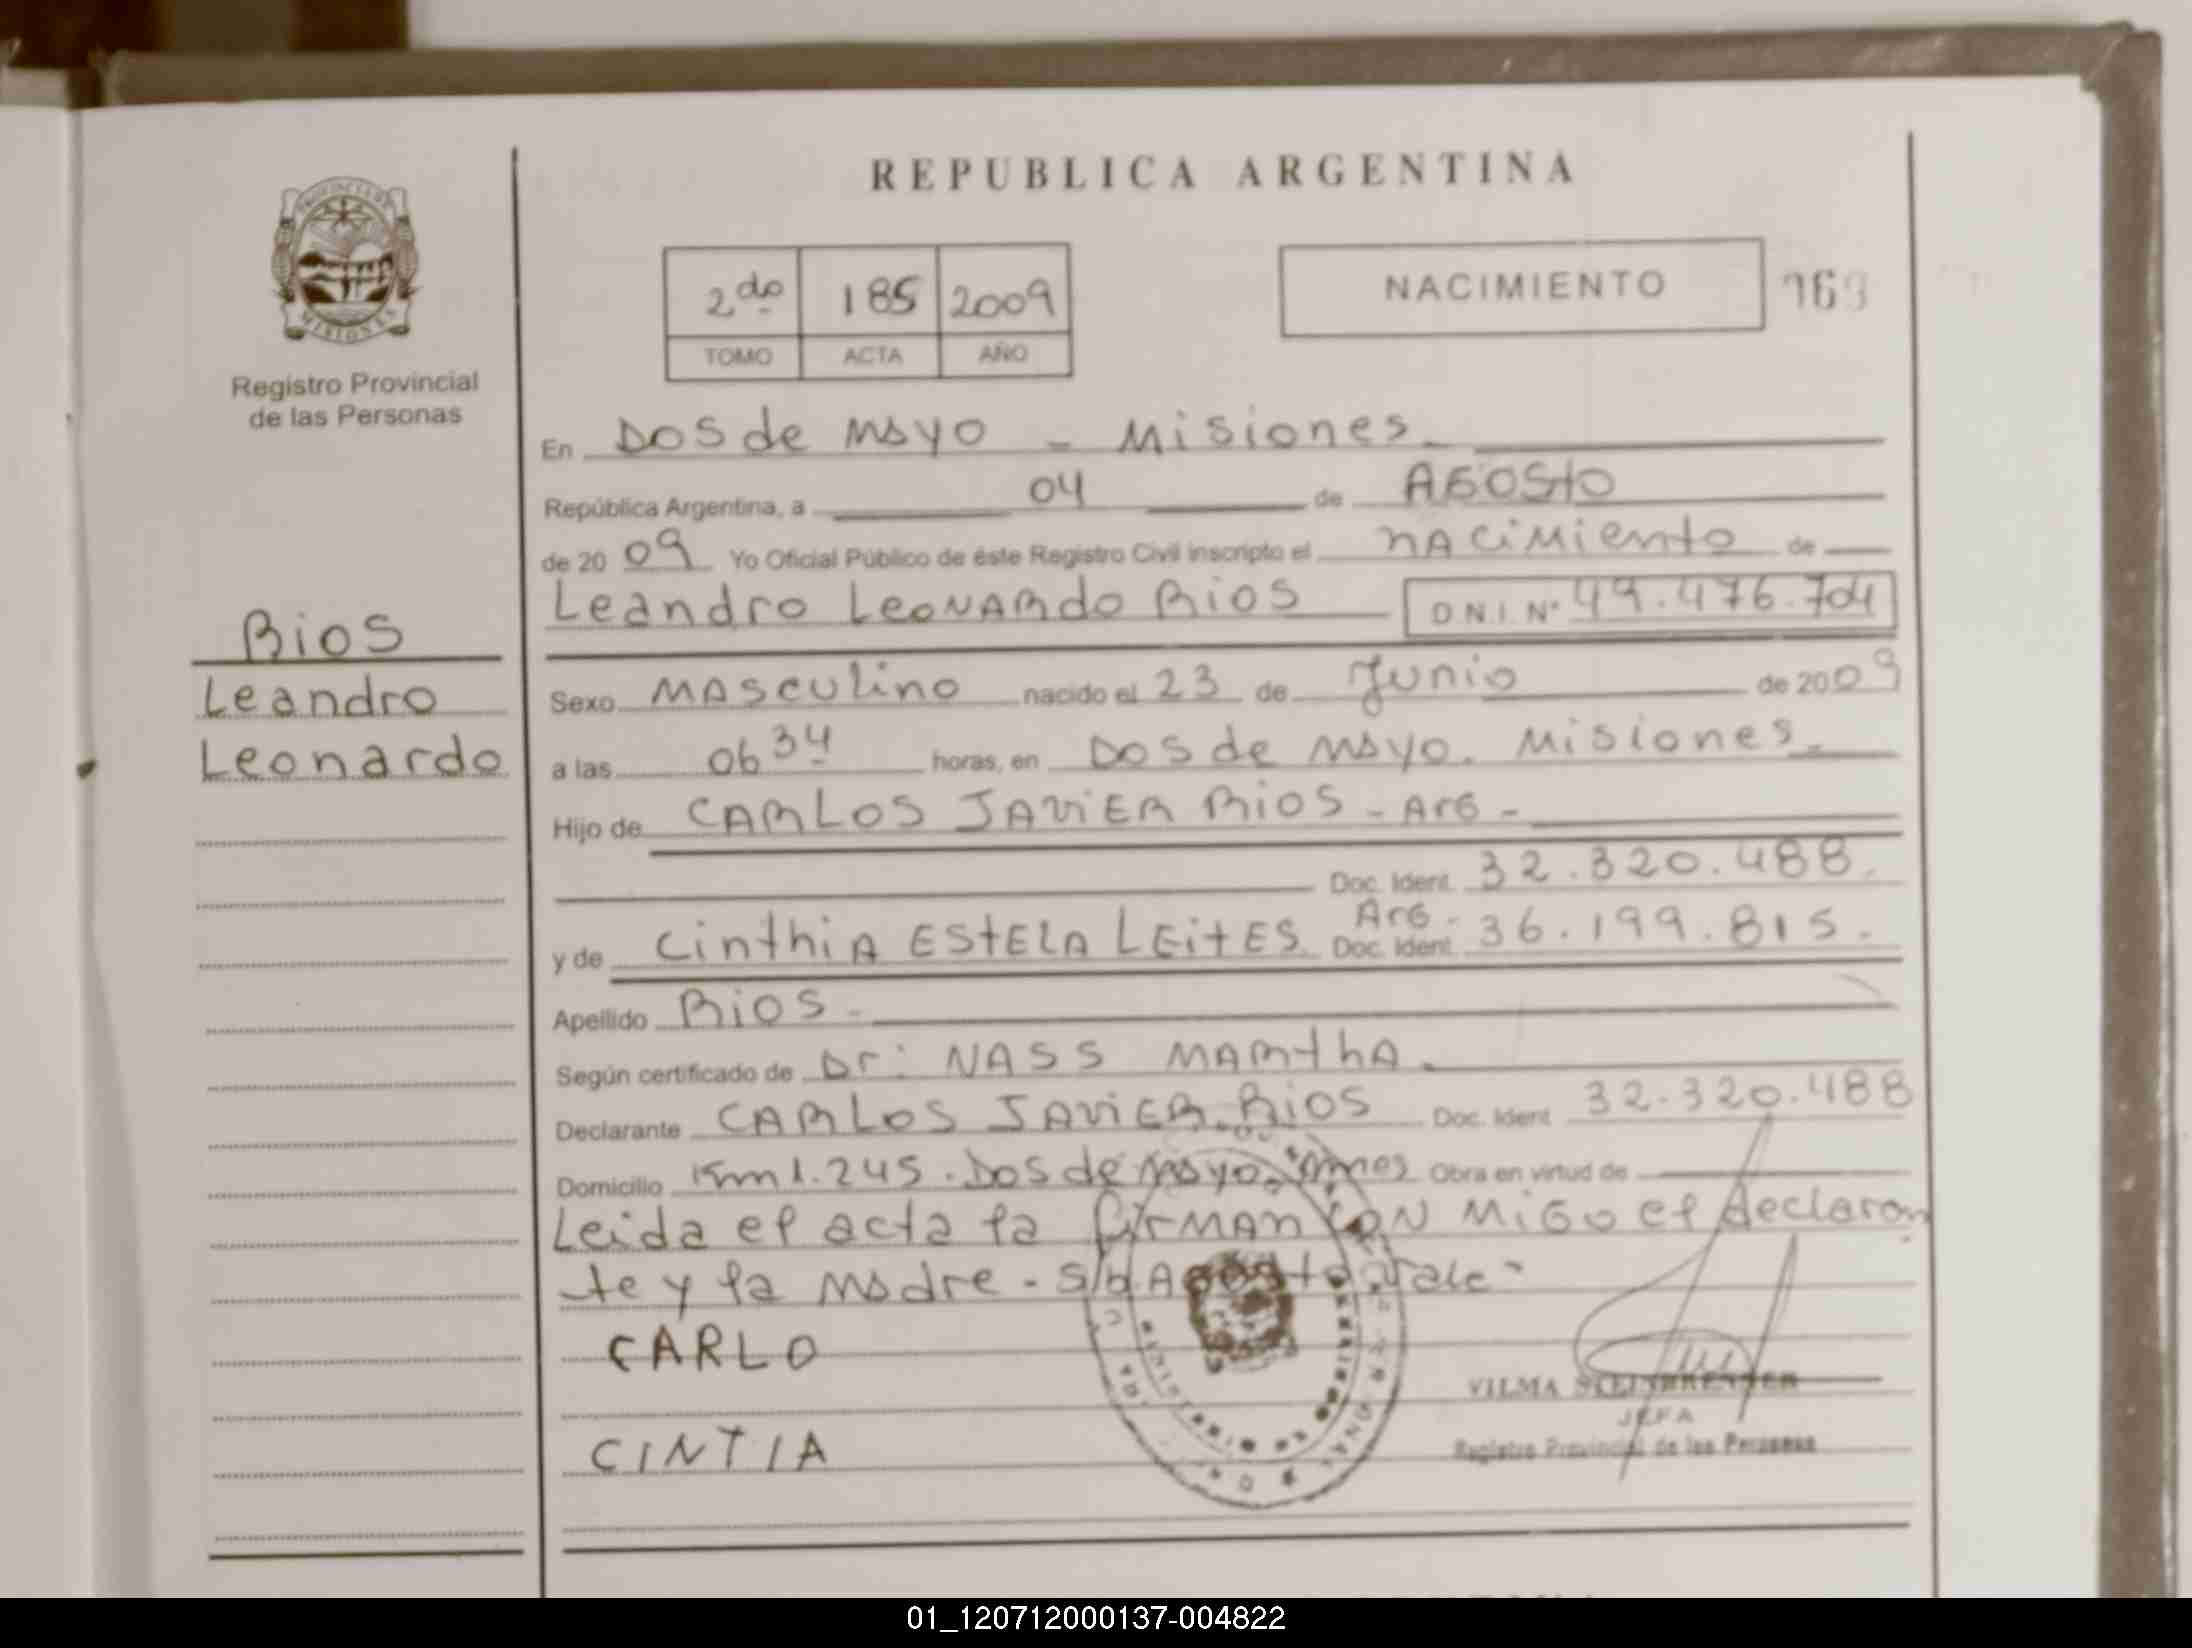 REPUBLICA ARGENTINA
PROVINCIA DE
MISIONES
Registro Provincial
de las Personas
2do 185 2009
TOMO ACTA AÑO
NACIMIENTO
En Dos de Mayo - Misiones.
República Argentina, a 04 de Agosto
de 2009 Yo Oficial Público de éste Registro Civil inscripto el nacimiento de
Leandro Leonardo Rios D.N.I. Nº 49.476.704
Rios
Leandro
Leonardo
Sexo Masculino nacido el 23 de Junio de 2009
a las 06 34 horas, en Dos de Mayo. Misiones.
Hijo de Carlos Javier Rios - Arg -
Doc. Ident. 32.320.488.
y de Cinthia Estela Leites Arg. Doc. Ident. 36.199.815.
Apellido Rios.
Según certificado de Dr: Nass Martha.
Declarante Carlos Javier Rios Doc. Ident 32.320.488
Domicilio Km 1.245. Dos de Mayo. Mnes Obra en virtud de
Leida el acta la firman con migo el declaran
te y la madre - S/b Agosto. vale -
CARLO
CINTIA
VILMA STEINBRENNER
JEFA
Registro Provincial de las Personas
01_120712000137-004822